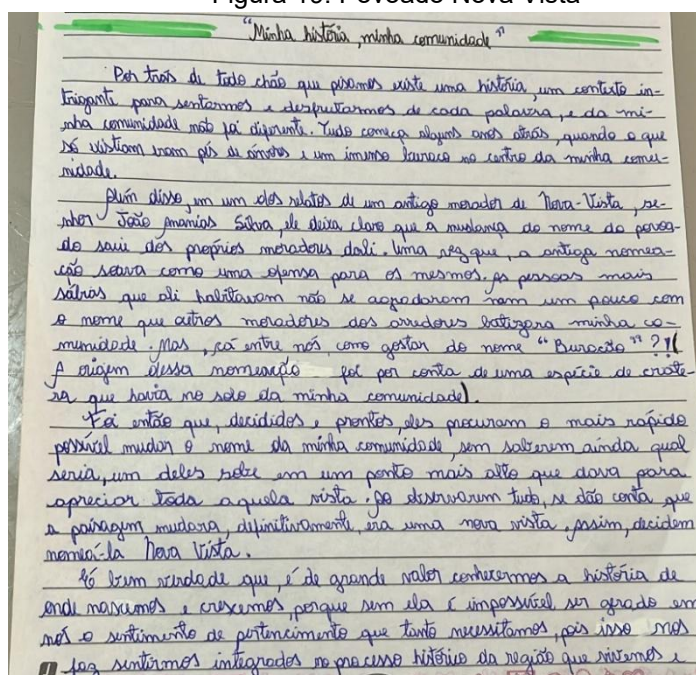 Figura 16: Povoado Nova Vista
"Minha história, minha comunidade"
Por trás de todo chão que pisamos existe uma história, um contexto in-
trigante para sentarmos e desfrutarmos de cada palavra, e da mi-
nha comunidade não foi diferente. Tudo começa alguns anos atrás, quando o que
só existiam eram pés de árvores e um imenso buraco no centro da minha comu-
nidade.
Além disso, em um dos relatos de um antigo morador de Nova-Vista, se-
nhor João Ananias Silva, ele deixa claro que a mudança do nome do povoa-
do saiu dos próprios moradores dali. Uma vez que, a antiga nomea-
ção soava como uma ofensa para os mesmos. As pessoas mais
sábias que ali habitavam não se agradaram nem um pouco com
o nome que outros moradores dos arredores batizara minha co-
munidade. Mas, cá entre nós, como gostar do nome "Buracão"?!(
A origem dessa nomeação foi por conta de uma espécie de crate-
ra que havia no solo da minha comunidade).
Foi então que, decididos e prontos, eles procuram o mais rápido
possível mudar o nome da minha comunidade, sem saberem ainda qual
seria, um deles sobe em um ponto mais alto que dava para
apreciar toda aquela vista. Ao observarem tudo, se dão conta que
a paisagem mudara, definitivamente, era uma nova vista. Assim, decidem
nomeá-la Nova Vista.
É bem verdade que, é de grande valor conhecermos a história de
onde nascemos e crescemos, porque sem ela é impossível ser gerado em
nós o sentimento de pertencimento que tanto necessitamos, pois isso nos
faz sentirmos integrados no processo histórico da região que vivemos e